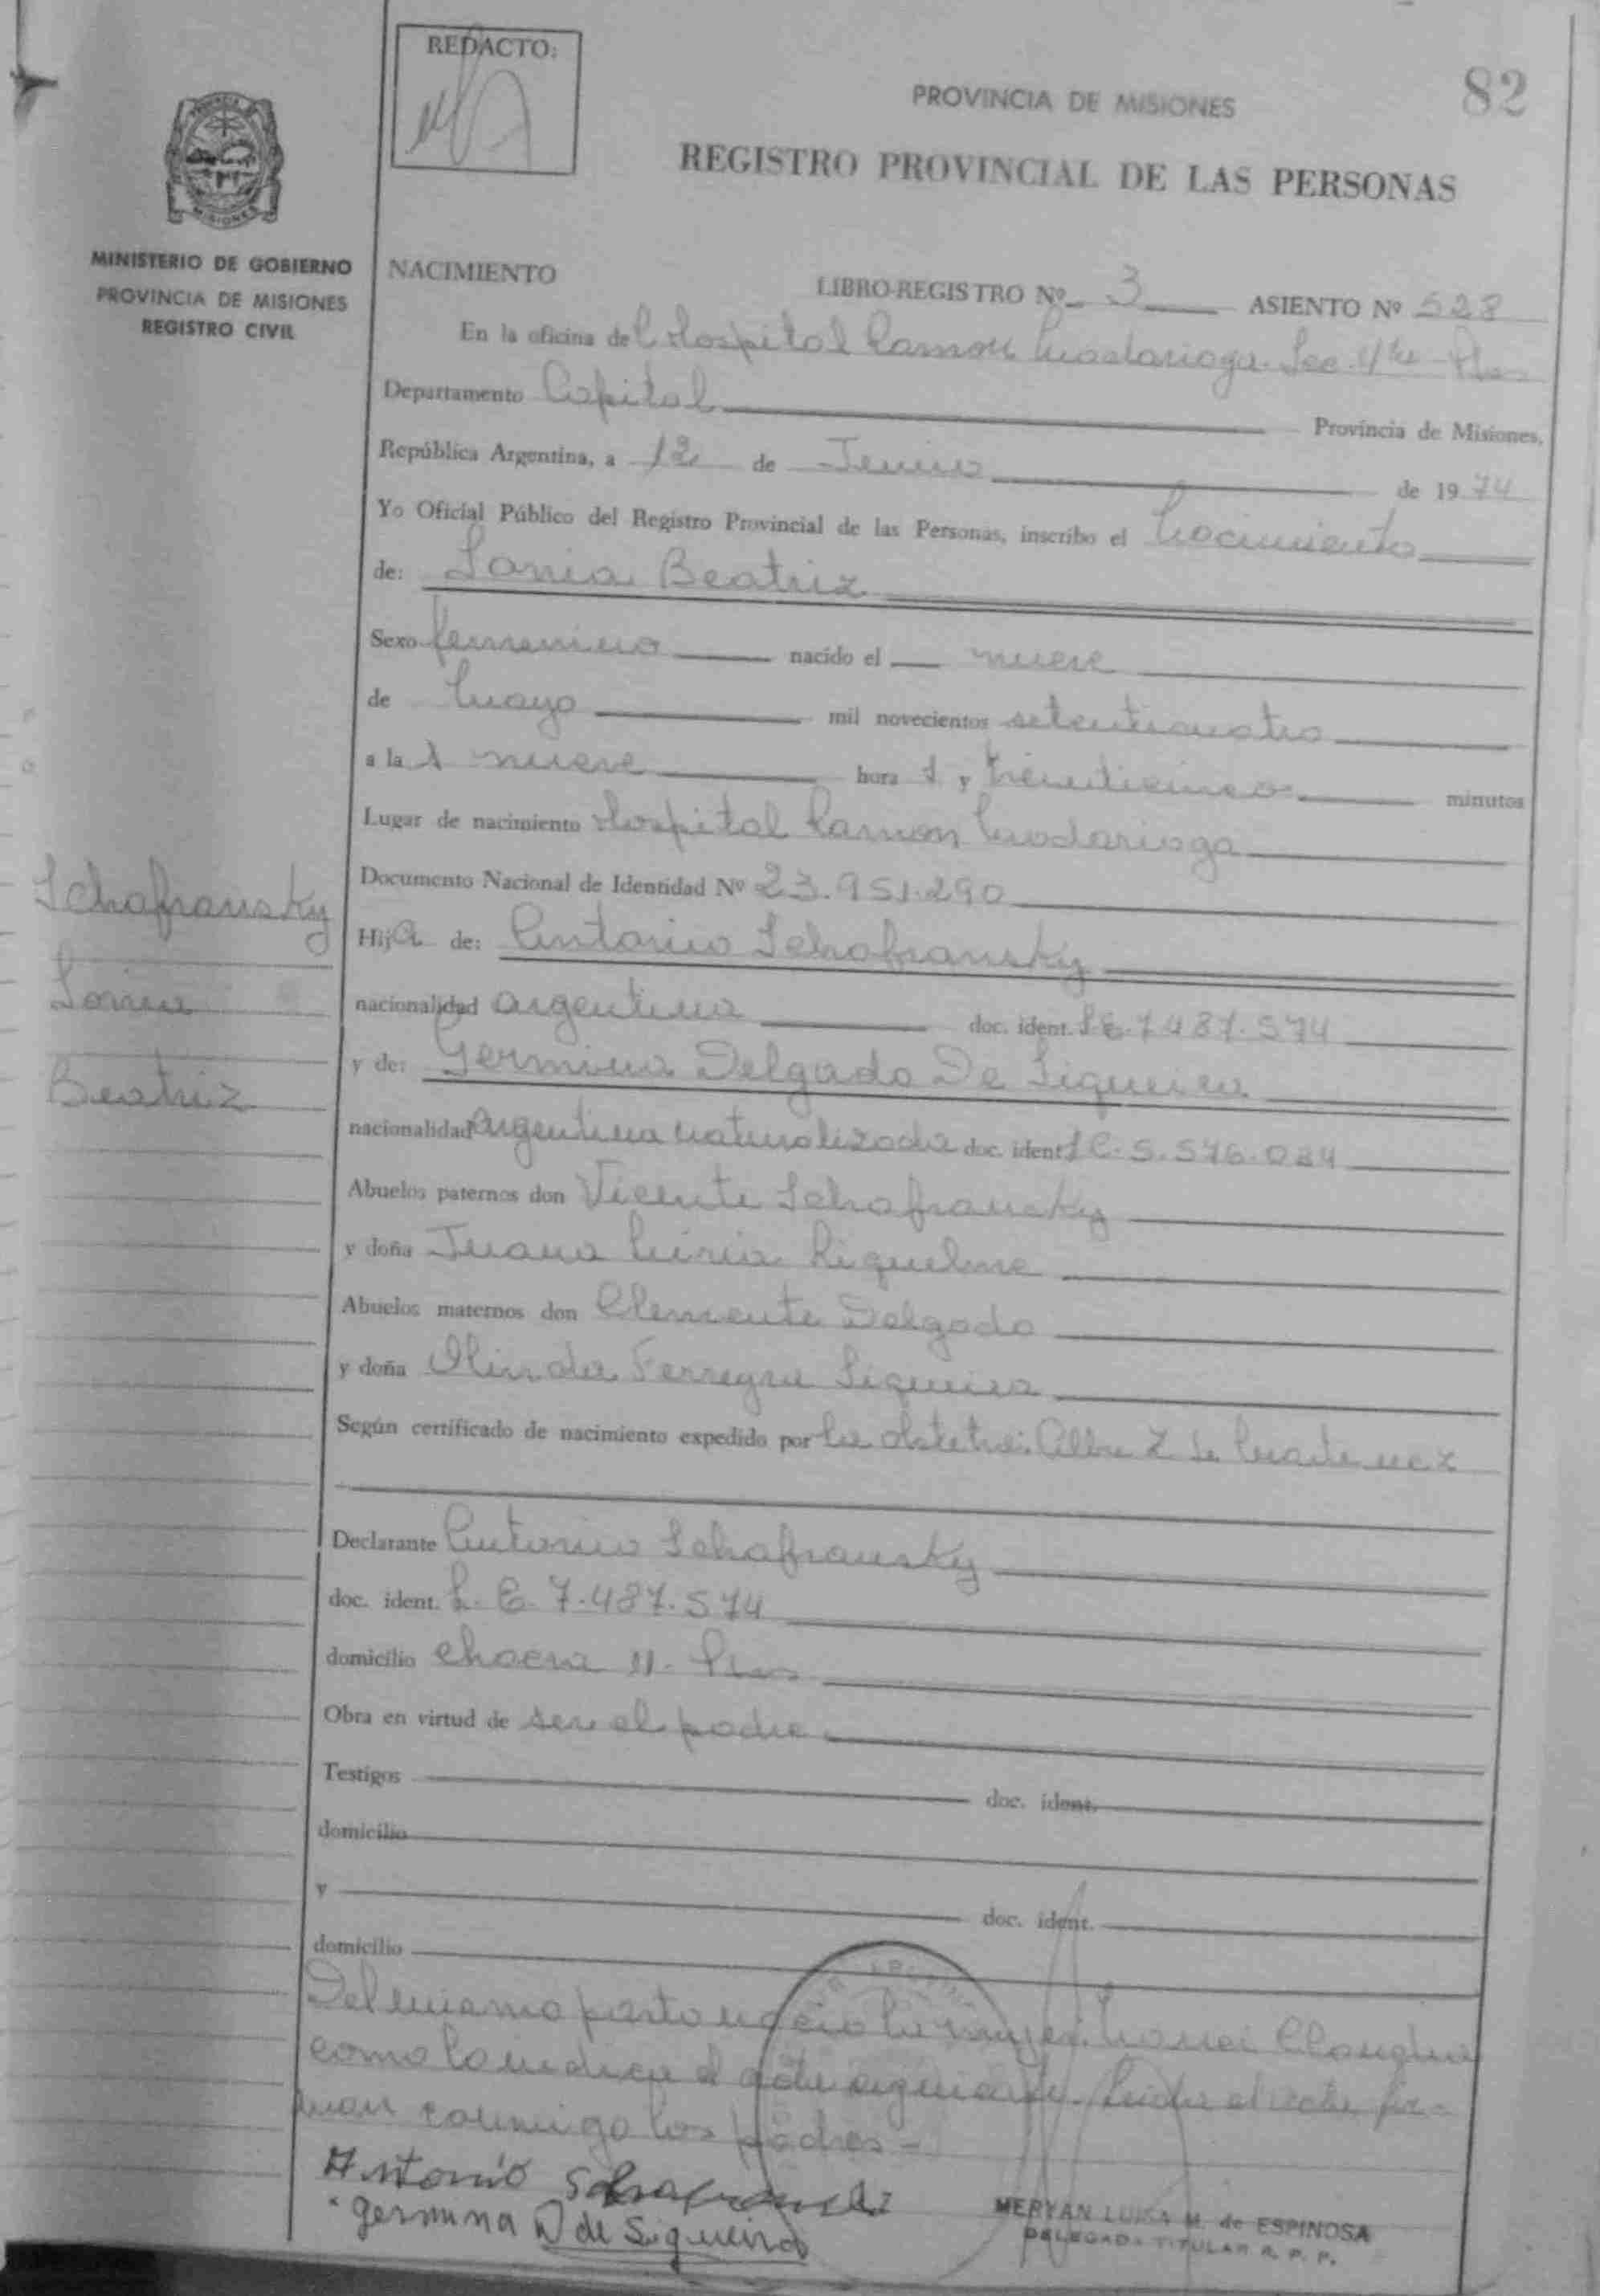 REDACTO:
82
PROVINCIA DE MISIONES
REGISTRO PROVINCIAL DE LAS PERSONAS
MINISTERIO DE GOBIERNO
PROVINCIA DE MISIONES
REGISTRO CIVIL
NACIMIENTO
LIBRO-REGISTRO Nº 3 ASIENTO Nº 528
En la oficina del Hospital Ramon Madariaga. Sec. 4ta
Departamento Capital Provincia de Misiones,
República Argentina, a 12 de Junio de 1974
Yo Oficial Público del Registro Provincial de las Personas, inscribo el Nacimiento
de: Sonia Beatriz
Sexo femenino nacido el nueve
de Mayo mil novecientos setenticuatro
a la s nueve hora s y treinticinco minutos
Lugar de nacimiento Hospital Ramon Madariaga
Documento Nacional de Identidad Nº 23.951.290
Schafransky
Sonia
Beatriz
Hija de: Antonio Schafransky
nacionalidad argentina doc. ident. L.E. 7.487.574
y de: Germina Delgado De Siqueira
nacionalidad argentina naturalizada doc. ident. L.C. 5.576.084
Abuelos paternos don Vicente Schafransky
y doña Juana Riquelme
Abuelos maternos don Clemente Delgado
y doña Olinda Ferreyra Siqueira
Según certificado de nacimiento expedido por la obstetra: Alba Z de Martinez
Declarante Antonio Schafransky
doc. ident. L. E. 7.487.574
domicilio chacra 11.
Obra en virtud de ser el padre
Testigos doc. ident.
domicilio
y doc. ident.
domicilio
Del mismo parto nacio la mujer:
como lo indica el acta siguiente. Leida el acta fir-
man conmigo los padres -
Antonio Schafransky
Germina D de Siqueira
MERYAN LUISA M. de ESPINOSA
DELEGADA TITULAR R. P. P.